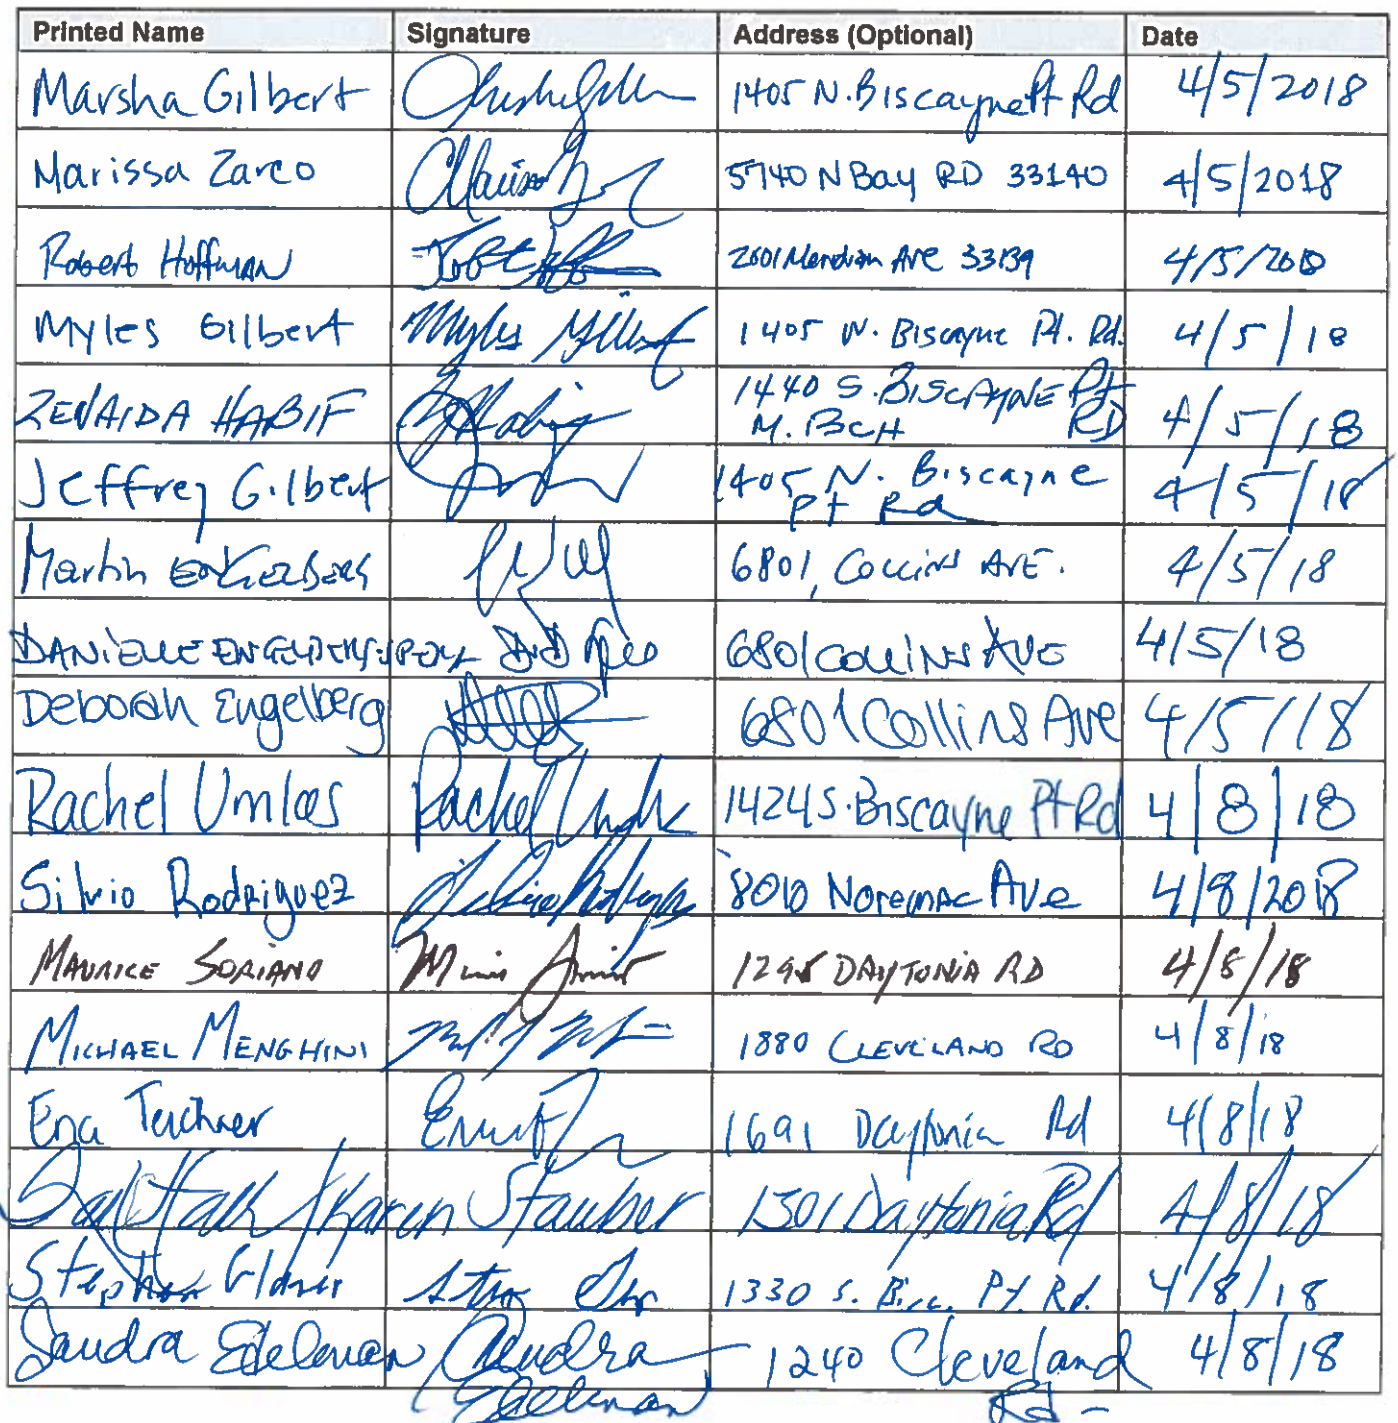 Printed Name Signature Address (Optional) Date
Marsha Gilbert 1405 N. Biscayne Pt Rd 4/5/2018
Marissa Zarco 5740 N Bay RD 33140 4/5/2018
Robert Hoffman 2601 Meridian Ave 33139 4/5/2018
Myles Gilbert Myles Gilbert 1405 N. Biscayne Pt. Rd. 4/5/18
ZENAIDA HABIF 1440 S. BISCAYNE Pt
M. BCH RD 4/5/18
Jeffrey Gilbert 1405 N. Biscayne 4/5/18
Pt Rd
Martin 6801, COLLINS AVE. 4/5/18
DANIELLE 6801 COLLINS AVE 4/5/18
Deborah Engelberg 6801 Collins Ave 4/5/18
Rachel Umlas Rachel Umlas 1424 S. Biscayne Pt Rd 4/8/18
Silvio Rodriguez Silvio Rodriguez 8010 Noremac Ave 4/8/2018
MAURICE SORIANO DAYTONIA RD 4/8/18
MICHAEL MENGHINI 1880 CLEVELAND RD 4/8/18
Ena Teichner 1691 Daytonia Rd 4/8/18
Karen Stauber 1301 Daytonia Rd 4/8/18
Stephen 1330 S. Bisc. Pt. Rd. 4/8/18
Sandra Edelman Sandra 1240 Cleveland 4/8/18
Edelman Rd -